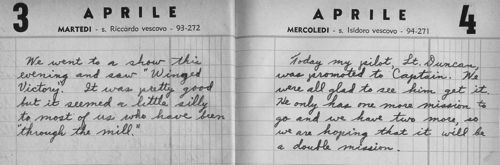 3 APRILE
MARTEDI - s. Riccardo vescovo - 93-272
We went to a show this
evening and saw "Winged
Victory." It was pretty good
but it seemed a little silly
to most of us who have been
"through the mill."
APRILE 4
MERCOLEDI - s. Isidoro vescovo - 94-271
Today my pilot, Lt. Duncan,
was promoted to Captain. We
were all glad to see him get it.
He only has one more mission to
go and we have two more, so
we are hoping that it will be
a double mission.